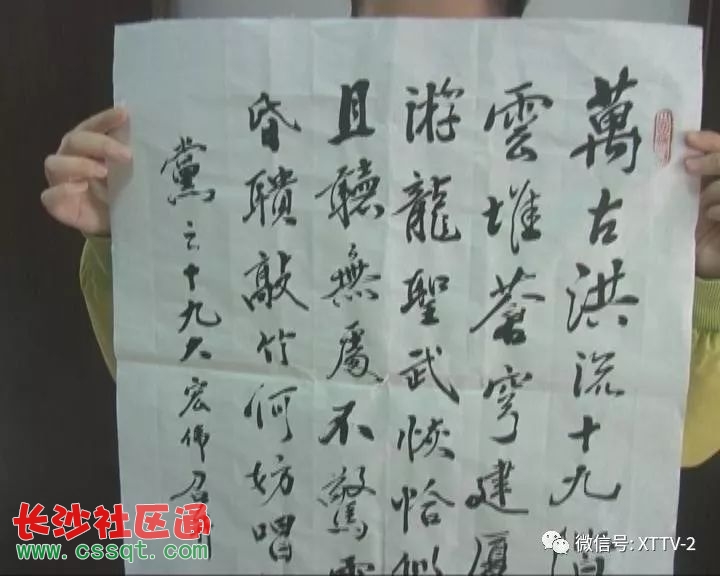 萬古洪流十九
雲堆蒼穹建厦
游龍聖武恢恰似
且聽無處不驚
昏聵敲竹何妨唱
黨之十九大宏偉召
长沙社区通
www.cssqt.com
微信号: XTTV-2